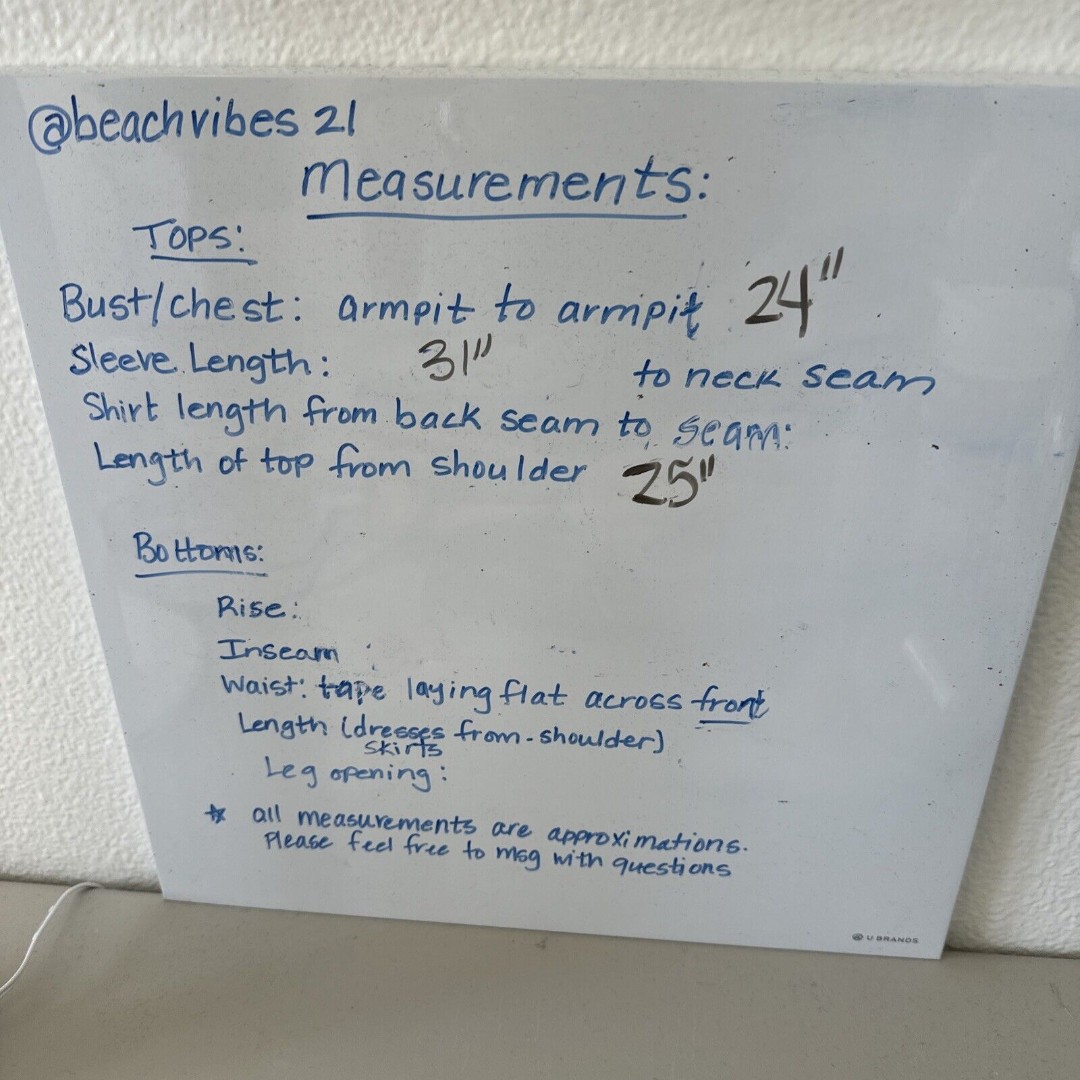 @beachvibes 21
Measurements:
Tops:
Bust/chest: armpit to armpit 24"
Sleeve Length: 31" to neck seam
Shirt length from back seam to seam:
Length of top from shoulder 25"
Bottoms:
Rise:
Inseam :
Waist: tape laying flat across front
Length (dresses from-shoulder)
skirts
Leg opening:
☆ all measurements are approximations.
Please feel free to msg with questions
U BRANDS